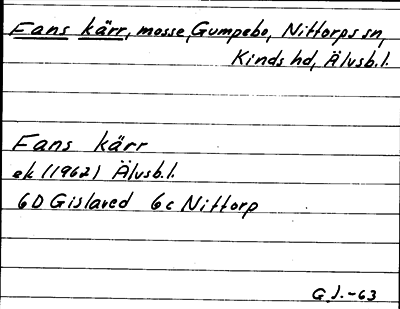 Fans kärr, mosse, Gumpebo, Nittorps sn,
Kinds hd, Älvsb.l.
Fans kärr
ek (1962) Älvsb.l.
6D Gislaved 6c Nittorp
G.J.-63